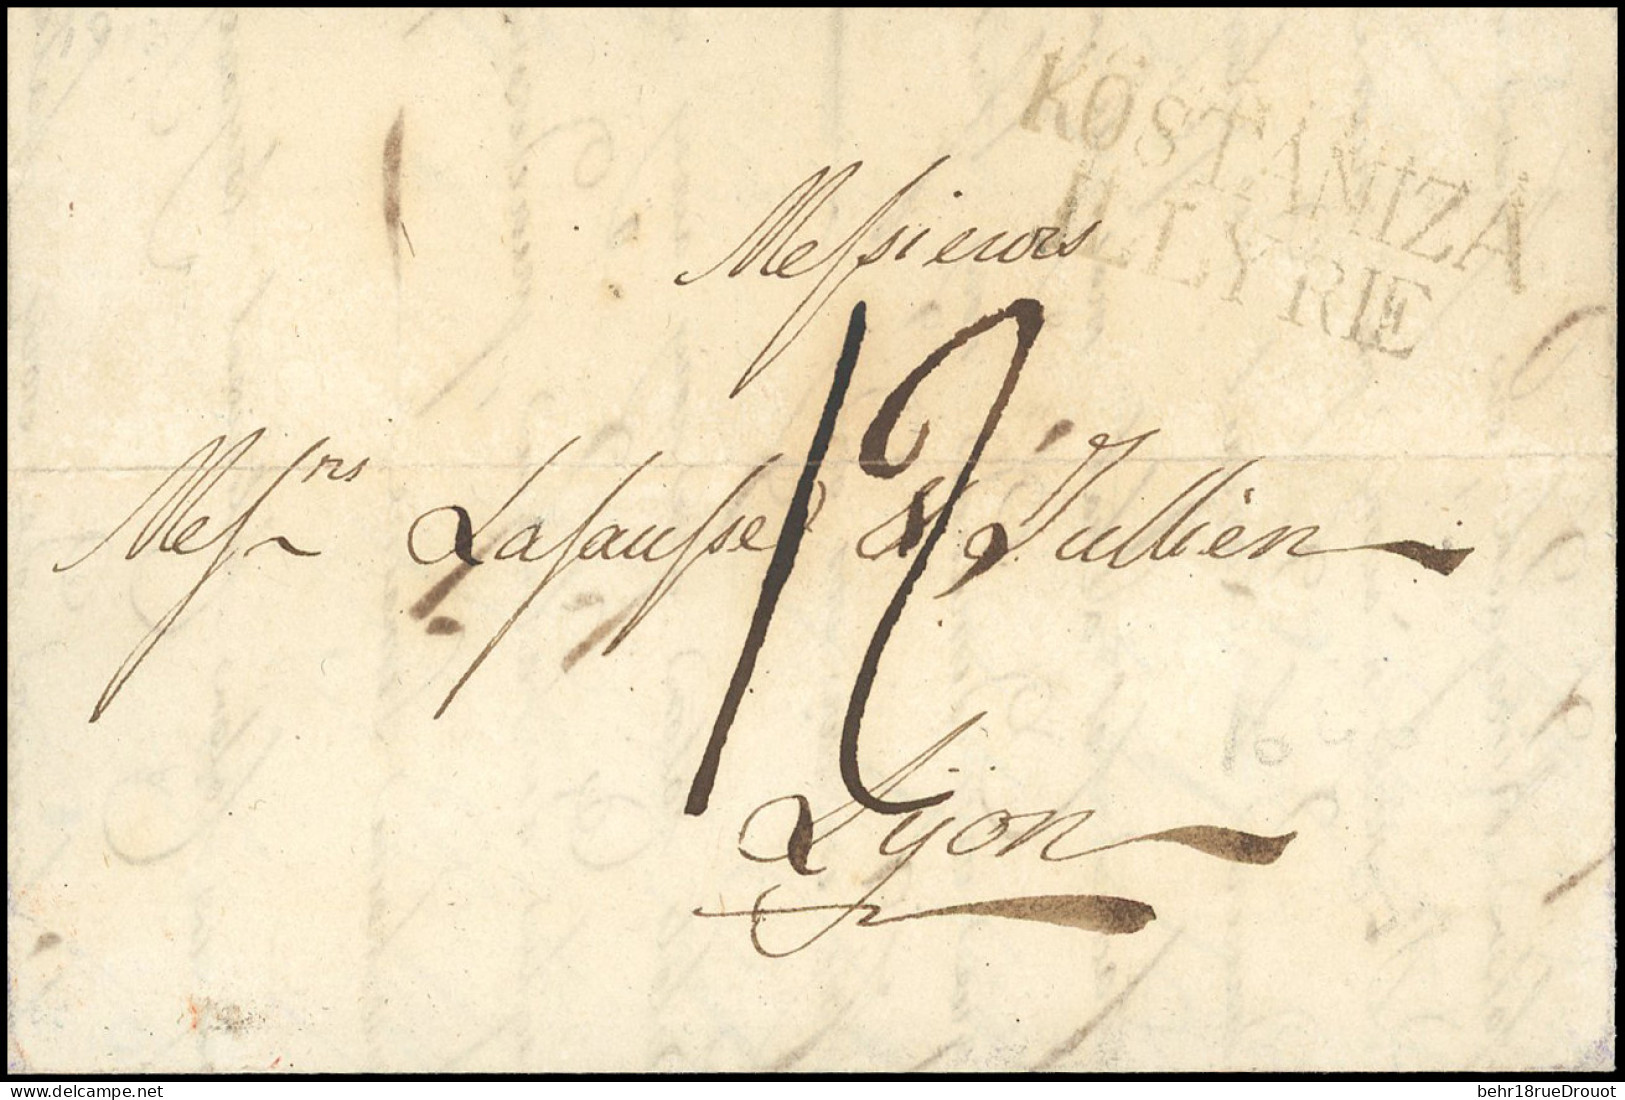 KOSTANIZA
ILLYRIE
Messieurs
12
Mess.rs Lafausse & Jullien
Lyon
delcampe.net
behr18rueDrouot